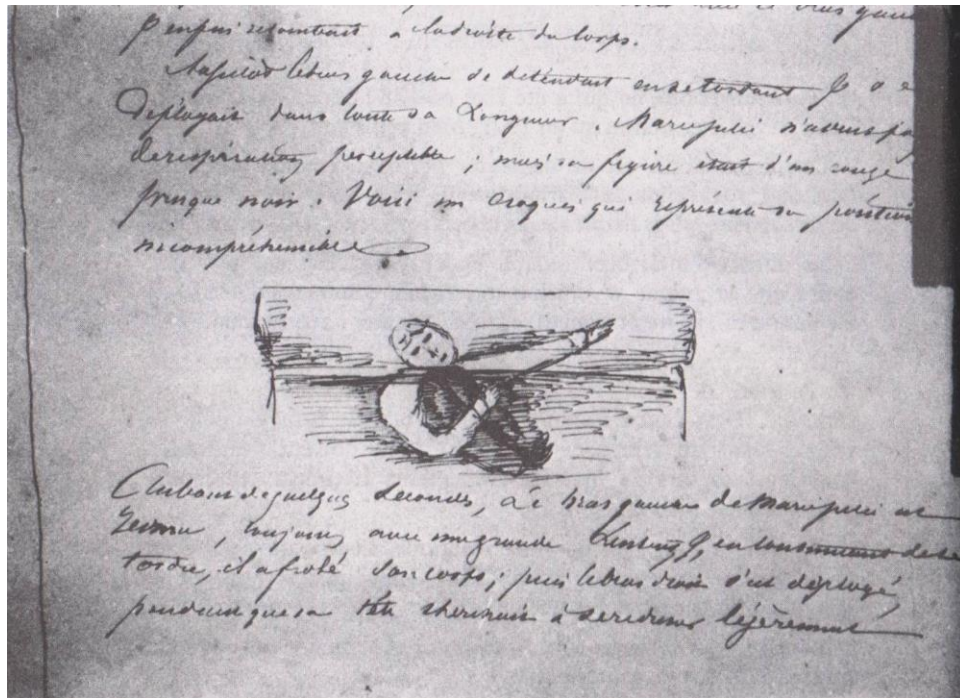 bras gau
puis retombait à la droite du corps.
Aussitôt le bras gauche se détendait en se tordant
déployait dans toute sa Longueur. Marie-Julie n'avait pa
de respiration perceptible ; mais sa figure était d'un rouge
presque noir. Voici un croquis qui représente sa position
incompréhensible
Au bout de quelques Secondes, Le bras gauche de Marie-Julie
toujours avec une grande Lenteur,
tordre, il a froté Son corps ; puis le bras droit s'est déployé,
pendant que sa tête cherchait à se redresser légèrement